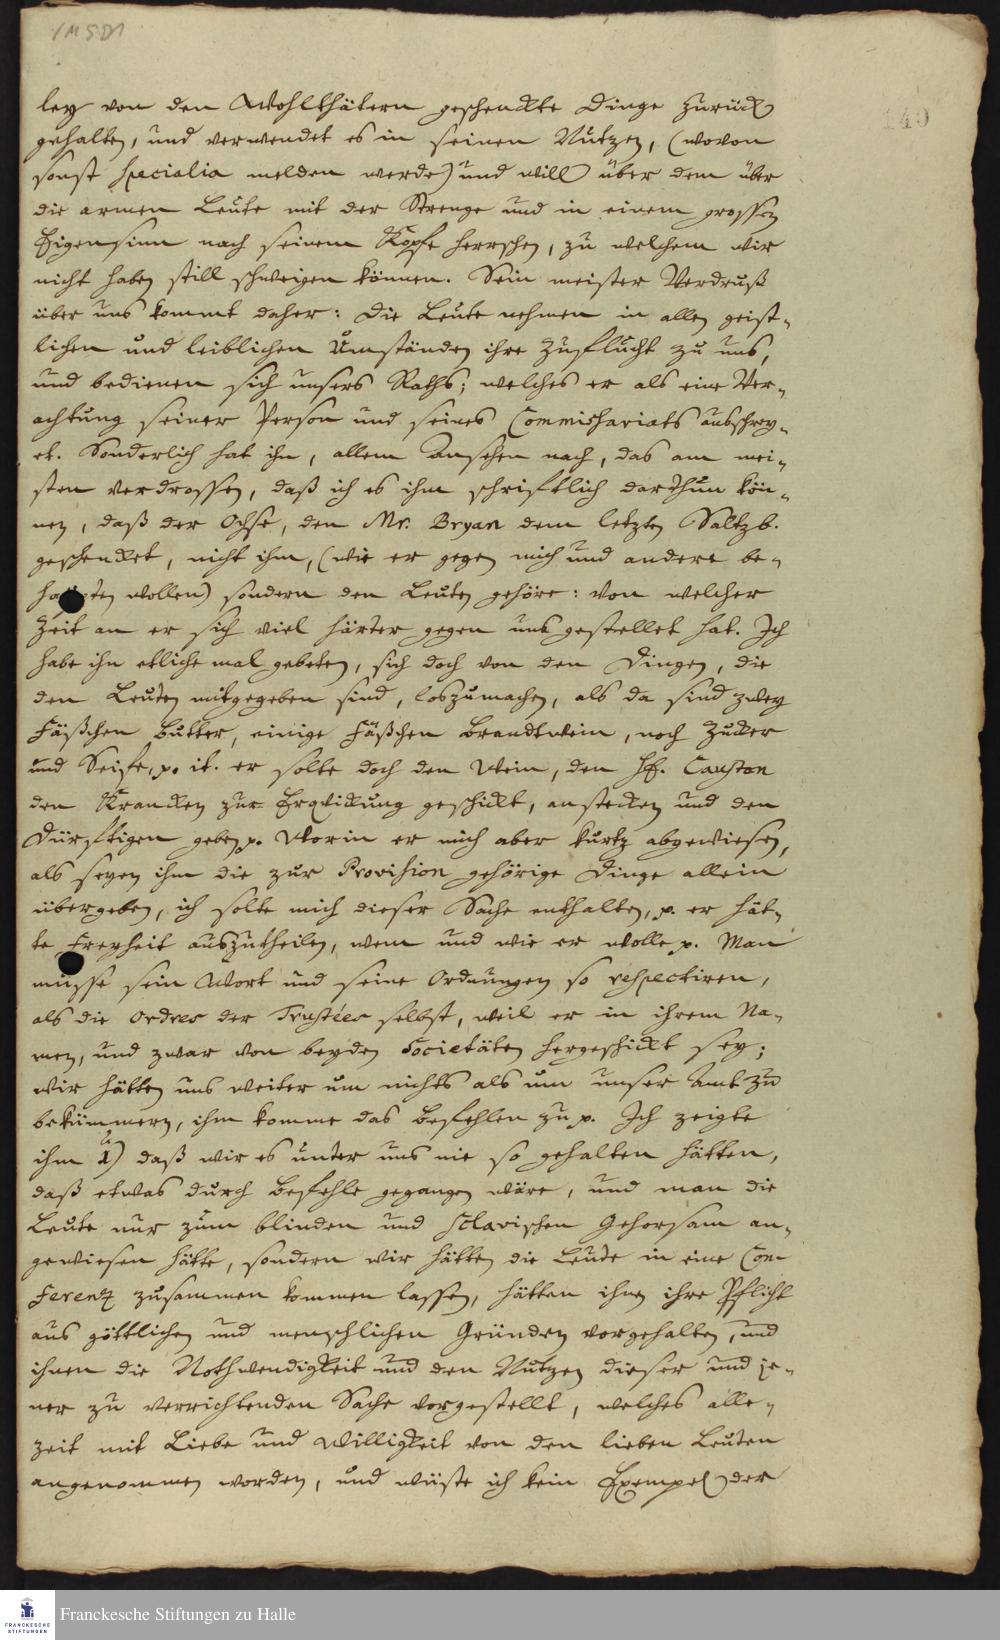 1M5D1
149
ley von den Wohlthätern geschenckte Dinge zurück
gehalten, und verwendet es in seinen Nutzen, (wovon
sonst specialia melden werde) und will über dem über
die armen Leute mit der Strenge und in einem grossen
Eigensinn nach seinem Kopfe herrschen, zu welchem wir
nicht haben still schweigen können. Sein meister Verdruß
über uns kommt daher: Die Leute nehmen in allen geist-
lichen und leiblichen Umständen ihre Zuflucht zu uns,
und bedienen sich unsers Raths; welches er als eine Ver-
achtung seiner Person und seines Commissariats ausschrey-
et. Sonderlich hat ihn, allem Ansehen nach, das am mei-
sten verdrossen, daß ich es ihm schriftlich darthun kön-
nen, daß der Ochse, den Mr. Bryan dem letzten Saltzb.
geschencket, nicht ihm, (wie er gegen mich und andere be-
haupten wollen) sondern den Leuten gehöre: von welcher
Zeit an er sich viel härter gegen uns gestellet hat. Ich
habe ihn etliche mal gebeten, sich doch von den Dingen, die
den Leuten mitgegeben sind, loszumachen, als da sind zwey
Fäßchen Butter, einige Fäßchen Brandtwein, noch Zucker
und Seife, p. it. er solte doch den Wein, den H. Causton
den Krancken zur Erquickung geschickt, anstecken und den
Dürftigen geben p. Worin er mich aber kurtz abgewiesen,
als seyen ihm die zur Provision gehörige Dinge allein
übergeben, ich solte mich dieser Sache enthalten, p. er hät-
te Freyheit auszutheilen, wem und wie er wolle p. Man
müsse sein Wort und seine Ordnungen so respectiren,
als die Ordres der Trustées selbst, weil er in ihrem Na-
men, und zwar von beyden Societäten hergeschickt sey;
wir hätten uns weiter um nichts als um unser Amt zu
bekümmern, ihm komme das Befehlen zu p. Ich zeigte
ihm 1) daß wir es unter uns nie so gehalten hätten,
daß etwas durch Befehle gegangen wäre, und man die
Leute nur zum blinden und sclavischen Gehorsam an-
gewiesen hätte, sondern wir hätten die Leute in eine Con-
ferentz zusammen kommen lassen, hätten ihnen ihre Pflicht
aus göttlichen und menschlichen Gründen vorgehalten, und
ihnen die Nothwendigkeit und den Nutzen dieser und je-
ner zu verrichtenden Sache vorgestellt, welches alle-
zeit mit Liebe und Willigkeit von den lieben Leuten
angenommen worden, und wüste ich kein Exempel, der
FRANCKESCHE
STIFTUNGEN
Franckesche Stiftungen zu Halle